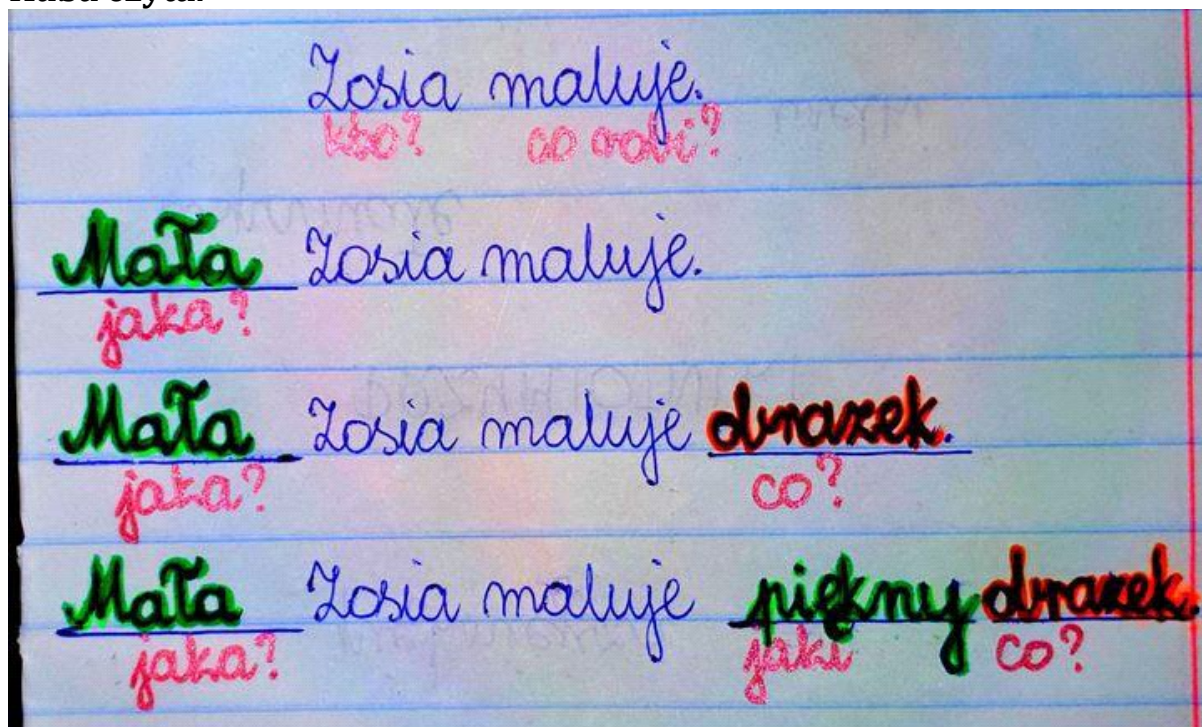 Zosia maluje.
kto? co robi?
Mała Zosia maluje.
jaka?
Mała Zosia maluje obrazek.
jaka? co?
Mała Zosia maluje piękny obrazek.
jaka? jaki co?